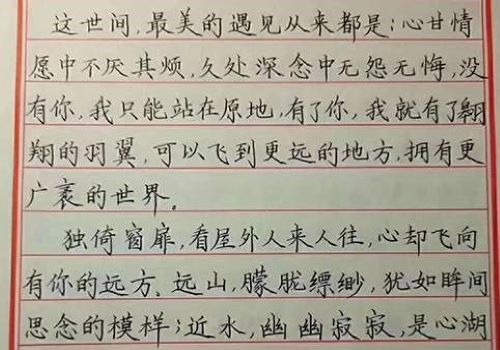 这世间,最美的遇见从来都是:心甘情
愿中不厌其烦,久处深念中无怨无悔,没
有你,我只能站在原地,有了你,我就有了翱
翔的羽翼,可以飞到更远的地方,拥有更
广袤的世界。
独倚窗扉,看屋外人来人往,心却飞向
有你的远方。远山,朦胧缥缈,犹如眸间
思念的模样;近水,幽幽寂寂,是心湖